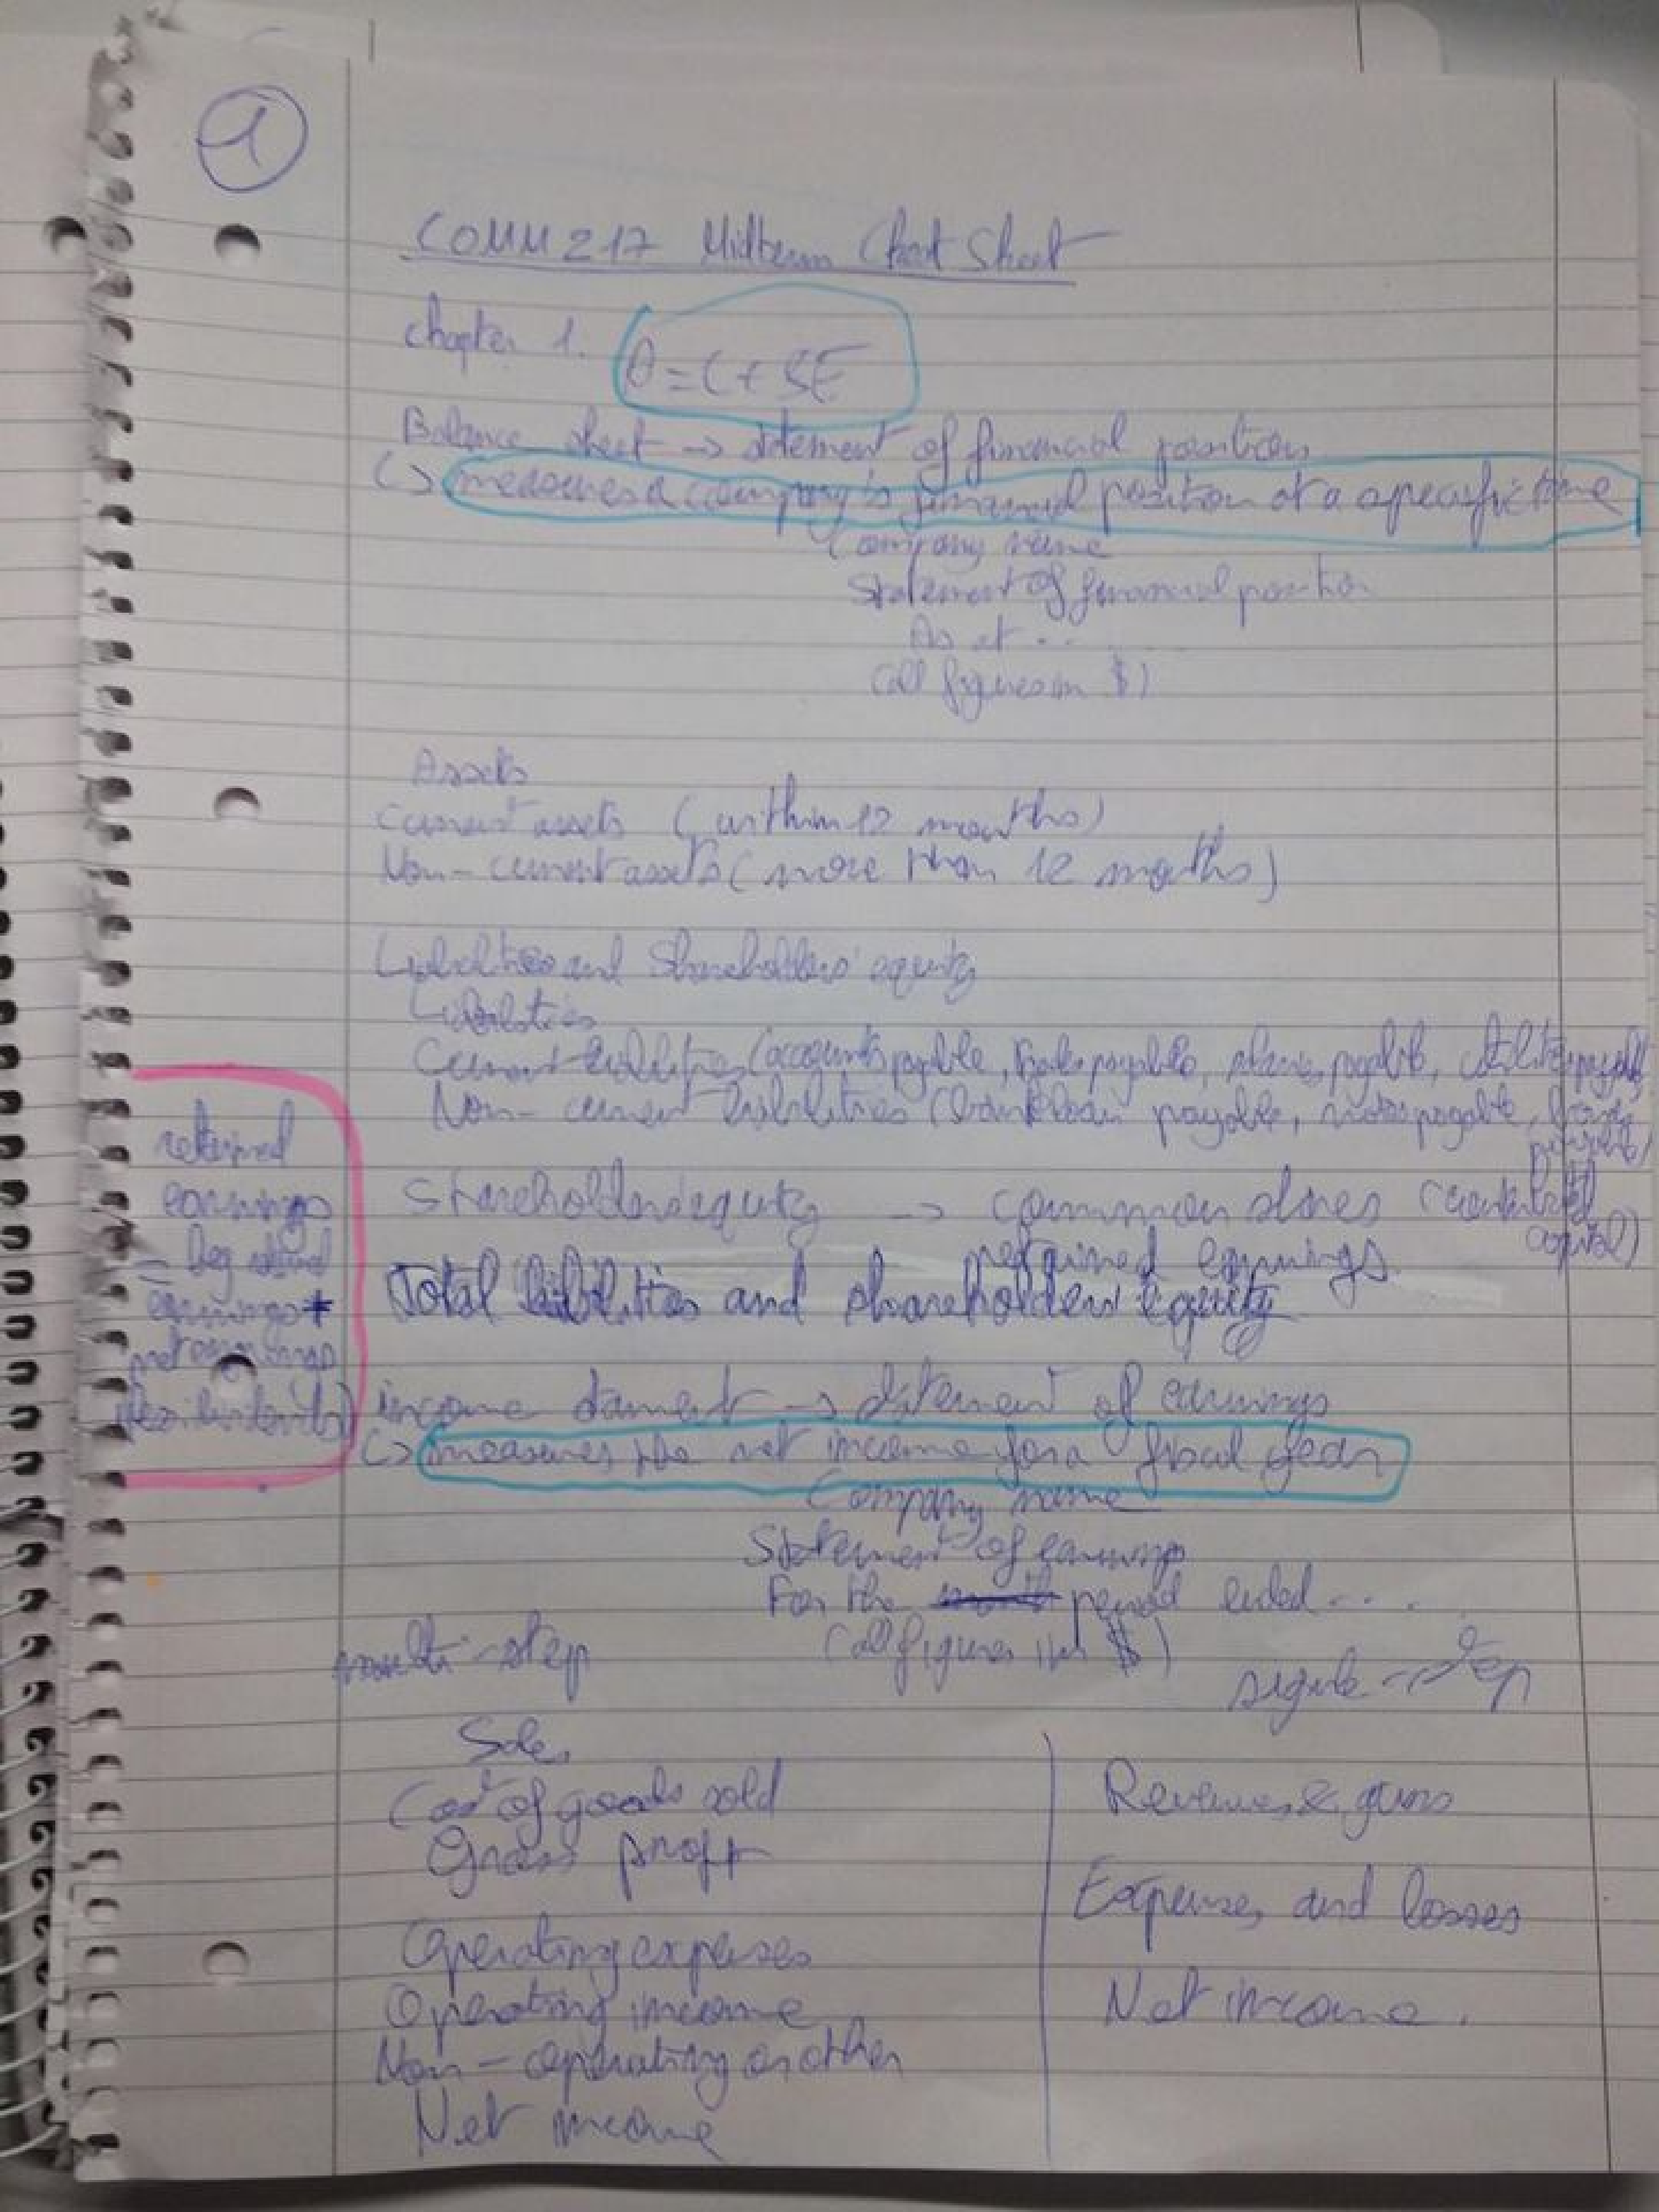 1
COMM 217 Midterm Cheat Sheet
Chapter 1.
A = L + SE
Balance sheet -> statement of financial position
measures a company's financial position at a specific time
Company name
Statement of financial position
As at ..
(all figures in $)
Assets
Current assets (within 12 months)
Non-current assets (more than 12 months)
Liabilities and Shareholders' equity
Liabilities
Current liabilities (accounts payable, payable, payable, payable)
Non-current liabilities (bank loan payable, notes payable,
payable)
Shareholders equity -> common shares (contributed
capital)
retained earnings
Total liabilities and shareholders equity
retained
earnings
= beg
earnings +
net earnings
income -> statement of earnings
measures the net income for a fiscal year
Company name
Statement of earnings
For the period ended ....
(all figures in $)
multi-step
step
Sales
Cost of goods sold
Gross profit
Operating expenses
Operating income
Non-operating or other
Net income
Revenues & gains
Expenses and losses
Net income.